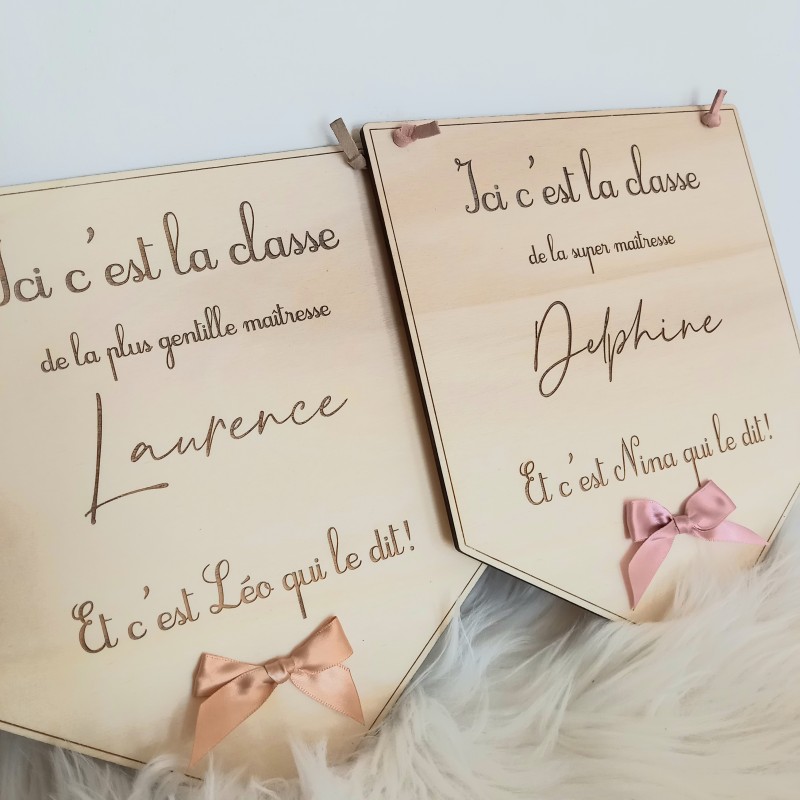 Ici c'est la classe
de la plus gentille maîtresse
Laurence
Et c'est Léo qui le dit!
Ici c'est la classe
de la super maîtresse
Delphine
Et c'est Nina qui le dit!